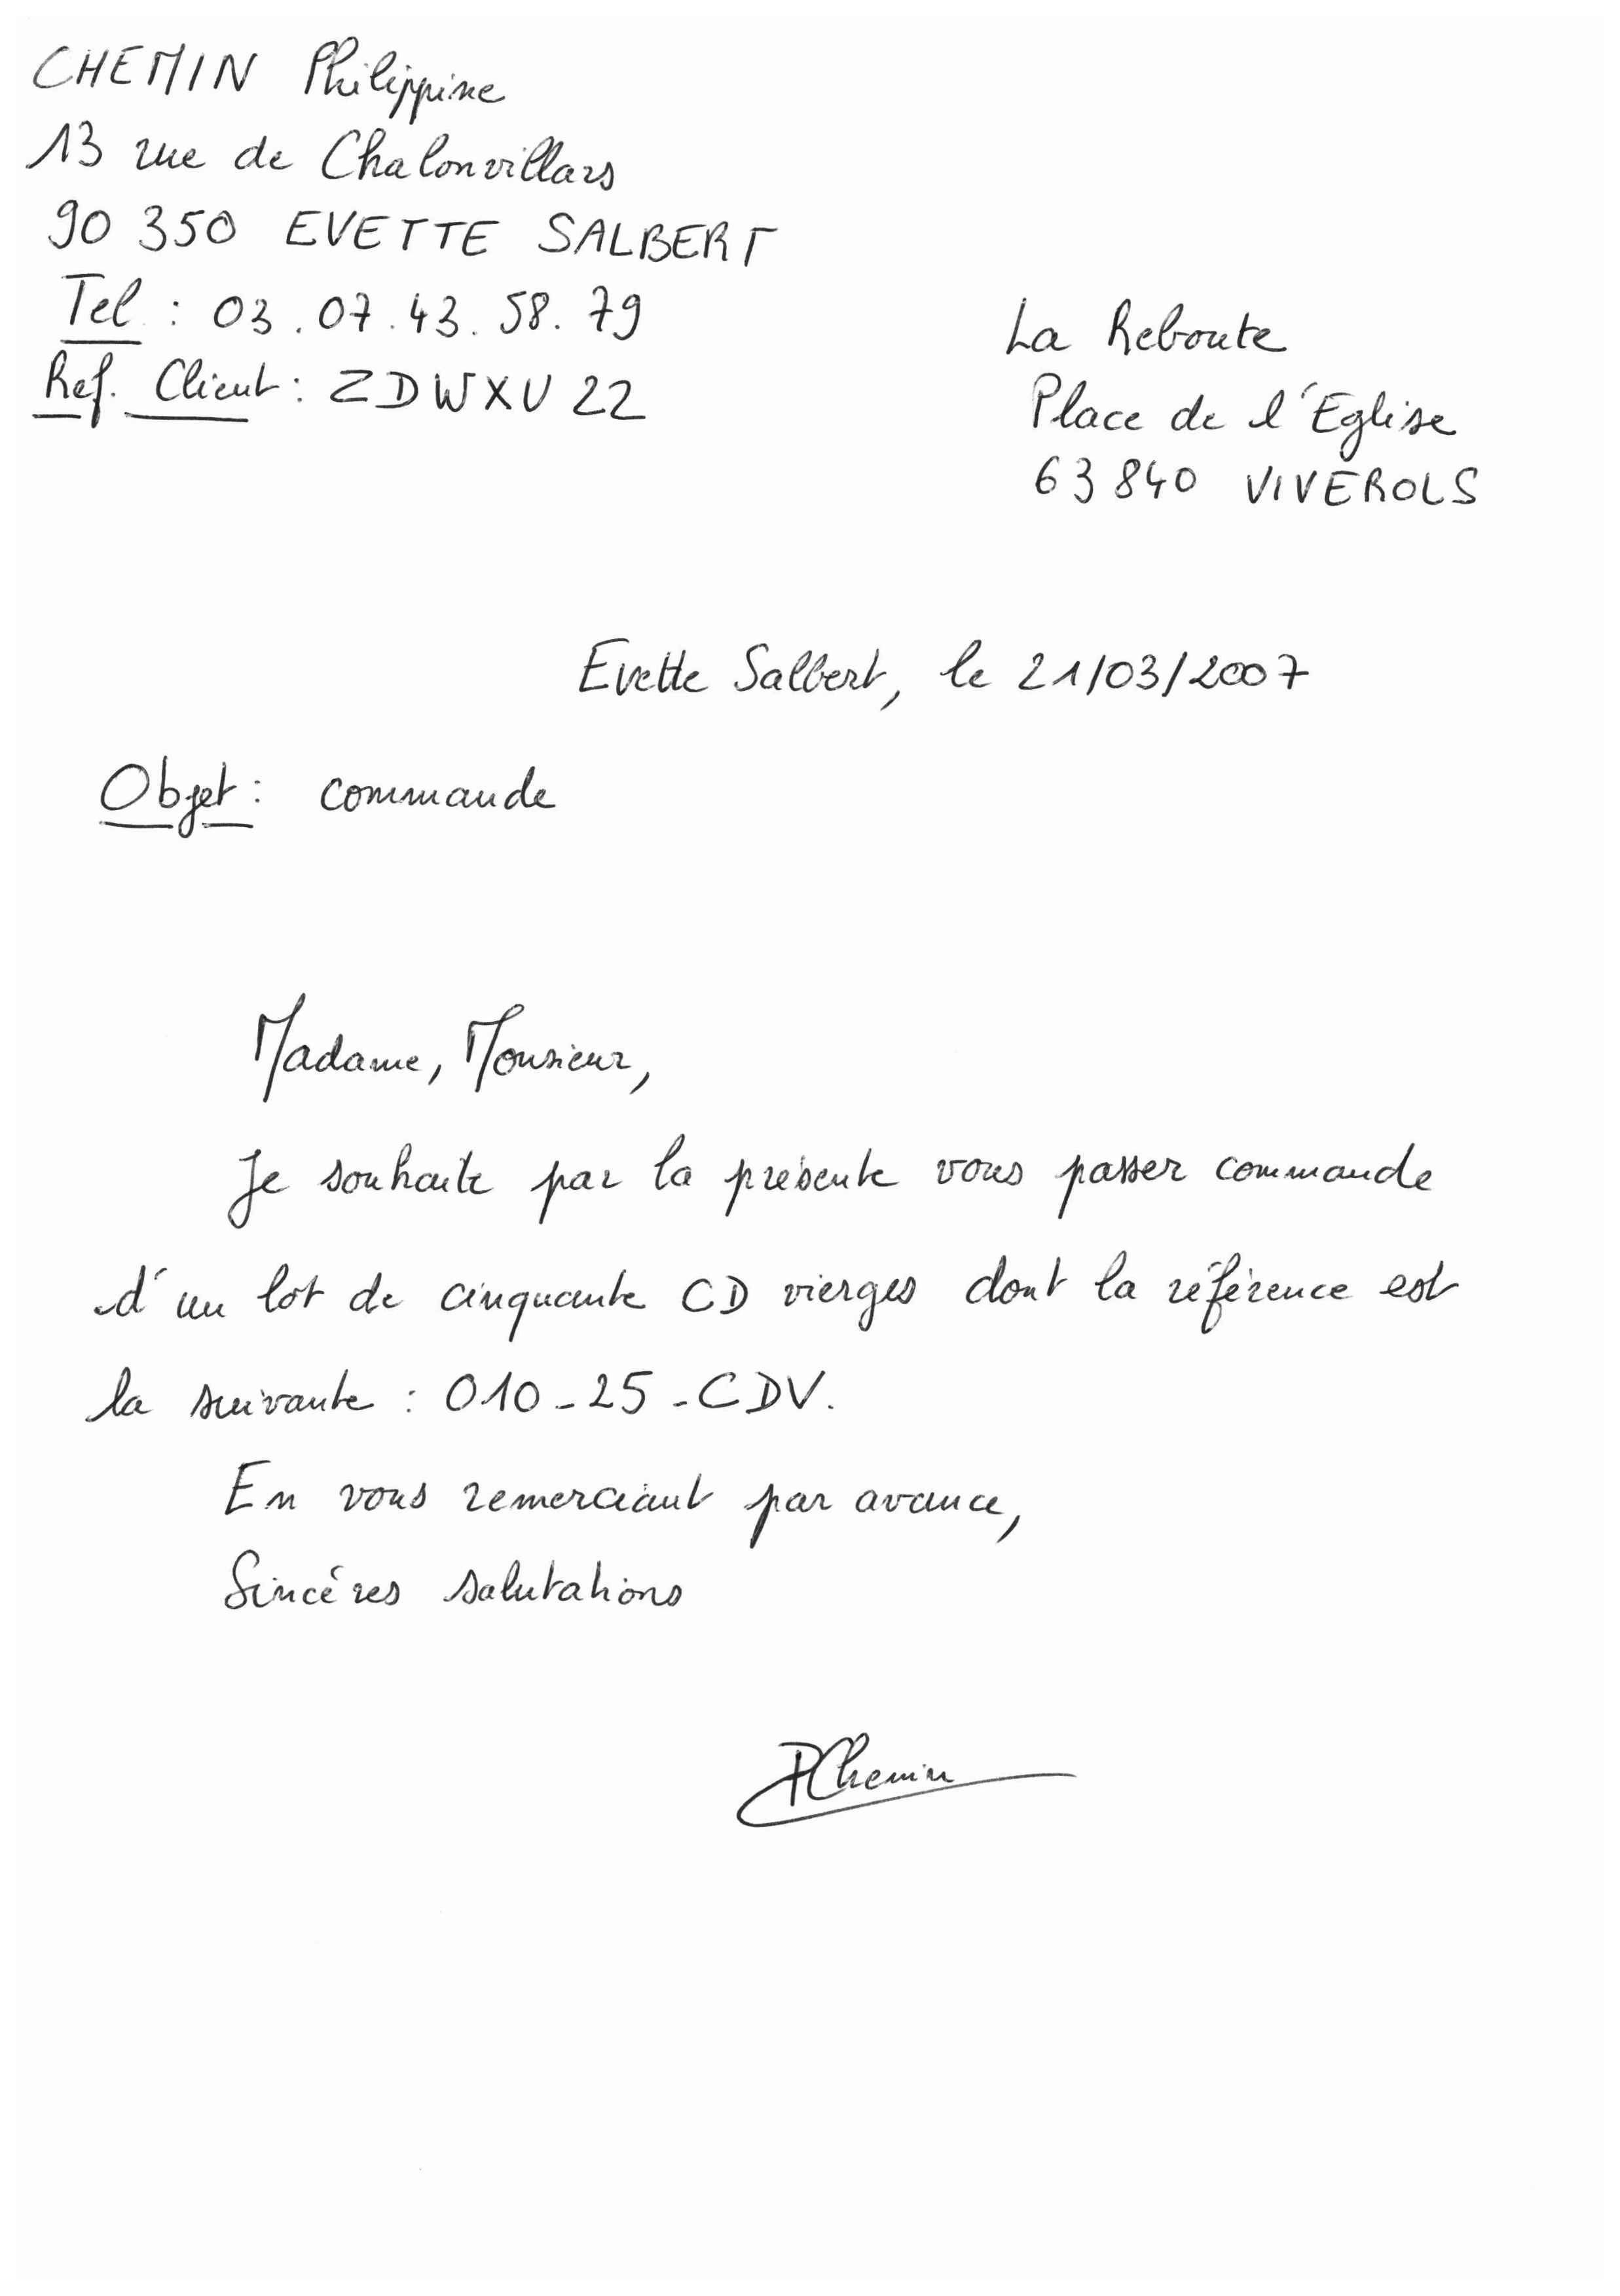 CHEMIN Philippine
13 rue de Chalonvillars
90 350 EVETTE SALBERT
Tel : 03.07.43.58.79
Ref. Client : ZDWXU 22
La Reboute
Place de l'Eglise
63 840 VIVEROLS
Evette Salbert, le 21/03/2007
Objet : commande
Madame, Monsieur,
Je souhaite par la présente vous passer commande
d'un lot de cinquante CD vierges dont la référence est
la suivante : 010-25-CDV.
En vous remerciant par avance,
Sincéres salutations
PChemin